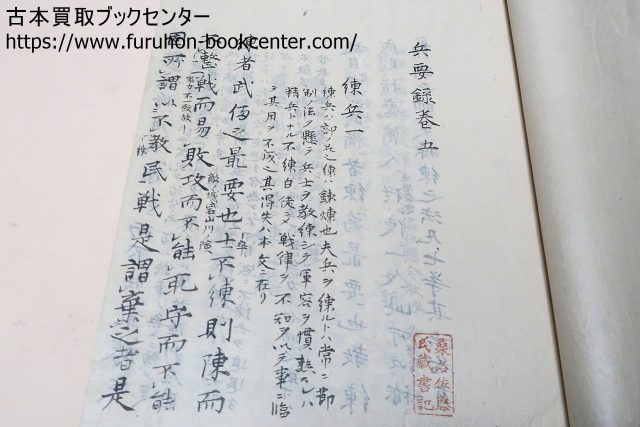 古本買取ブックセンター
https://www.furuhon-bookcenter.com/
兵要録巻五
練兵一
練兵ハ部ノ名練ハ鍛煉也夫兵ヲ練ルトハ常ニ節
制ノ法ヲ懸テ兵士ヲ教練シテ軍容ヲ慣熟スレハ
精兵トナル不練白徒ニテ戦律ヲ不知ヲ以テ軍ニ臨
其用ヲ不成其得失ハ本文ニ在リ
練者武備之最要也士不練則陳而
不整戦而易敗攻而不能取守而不能
固所謂以不教民戦是謂棄之者是
桑名
氏蔵書記